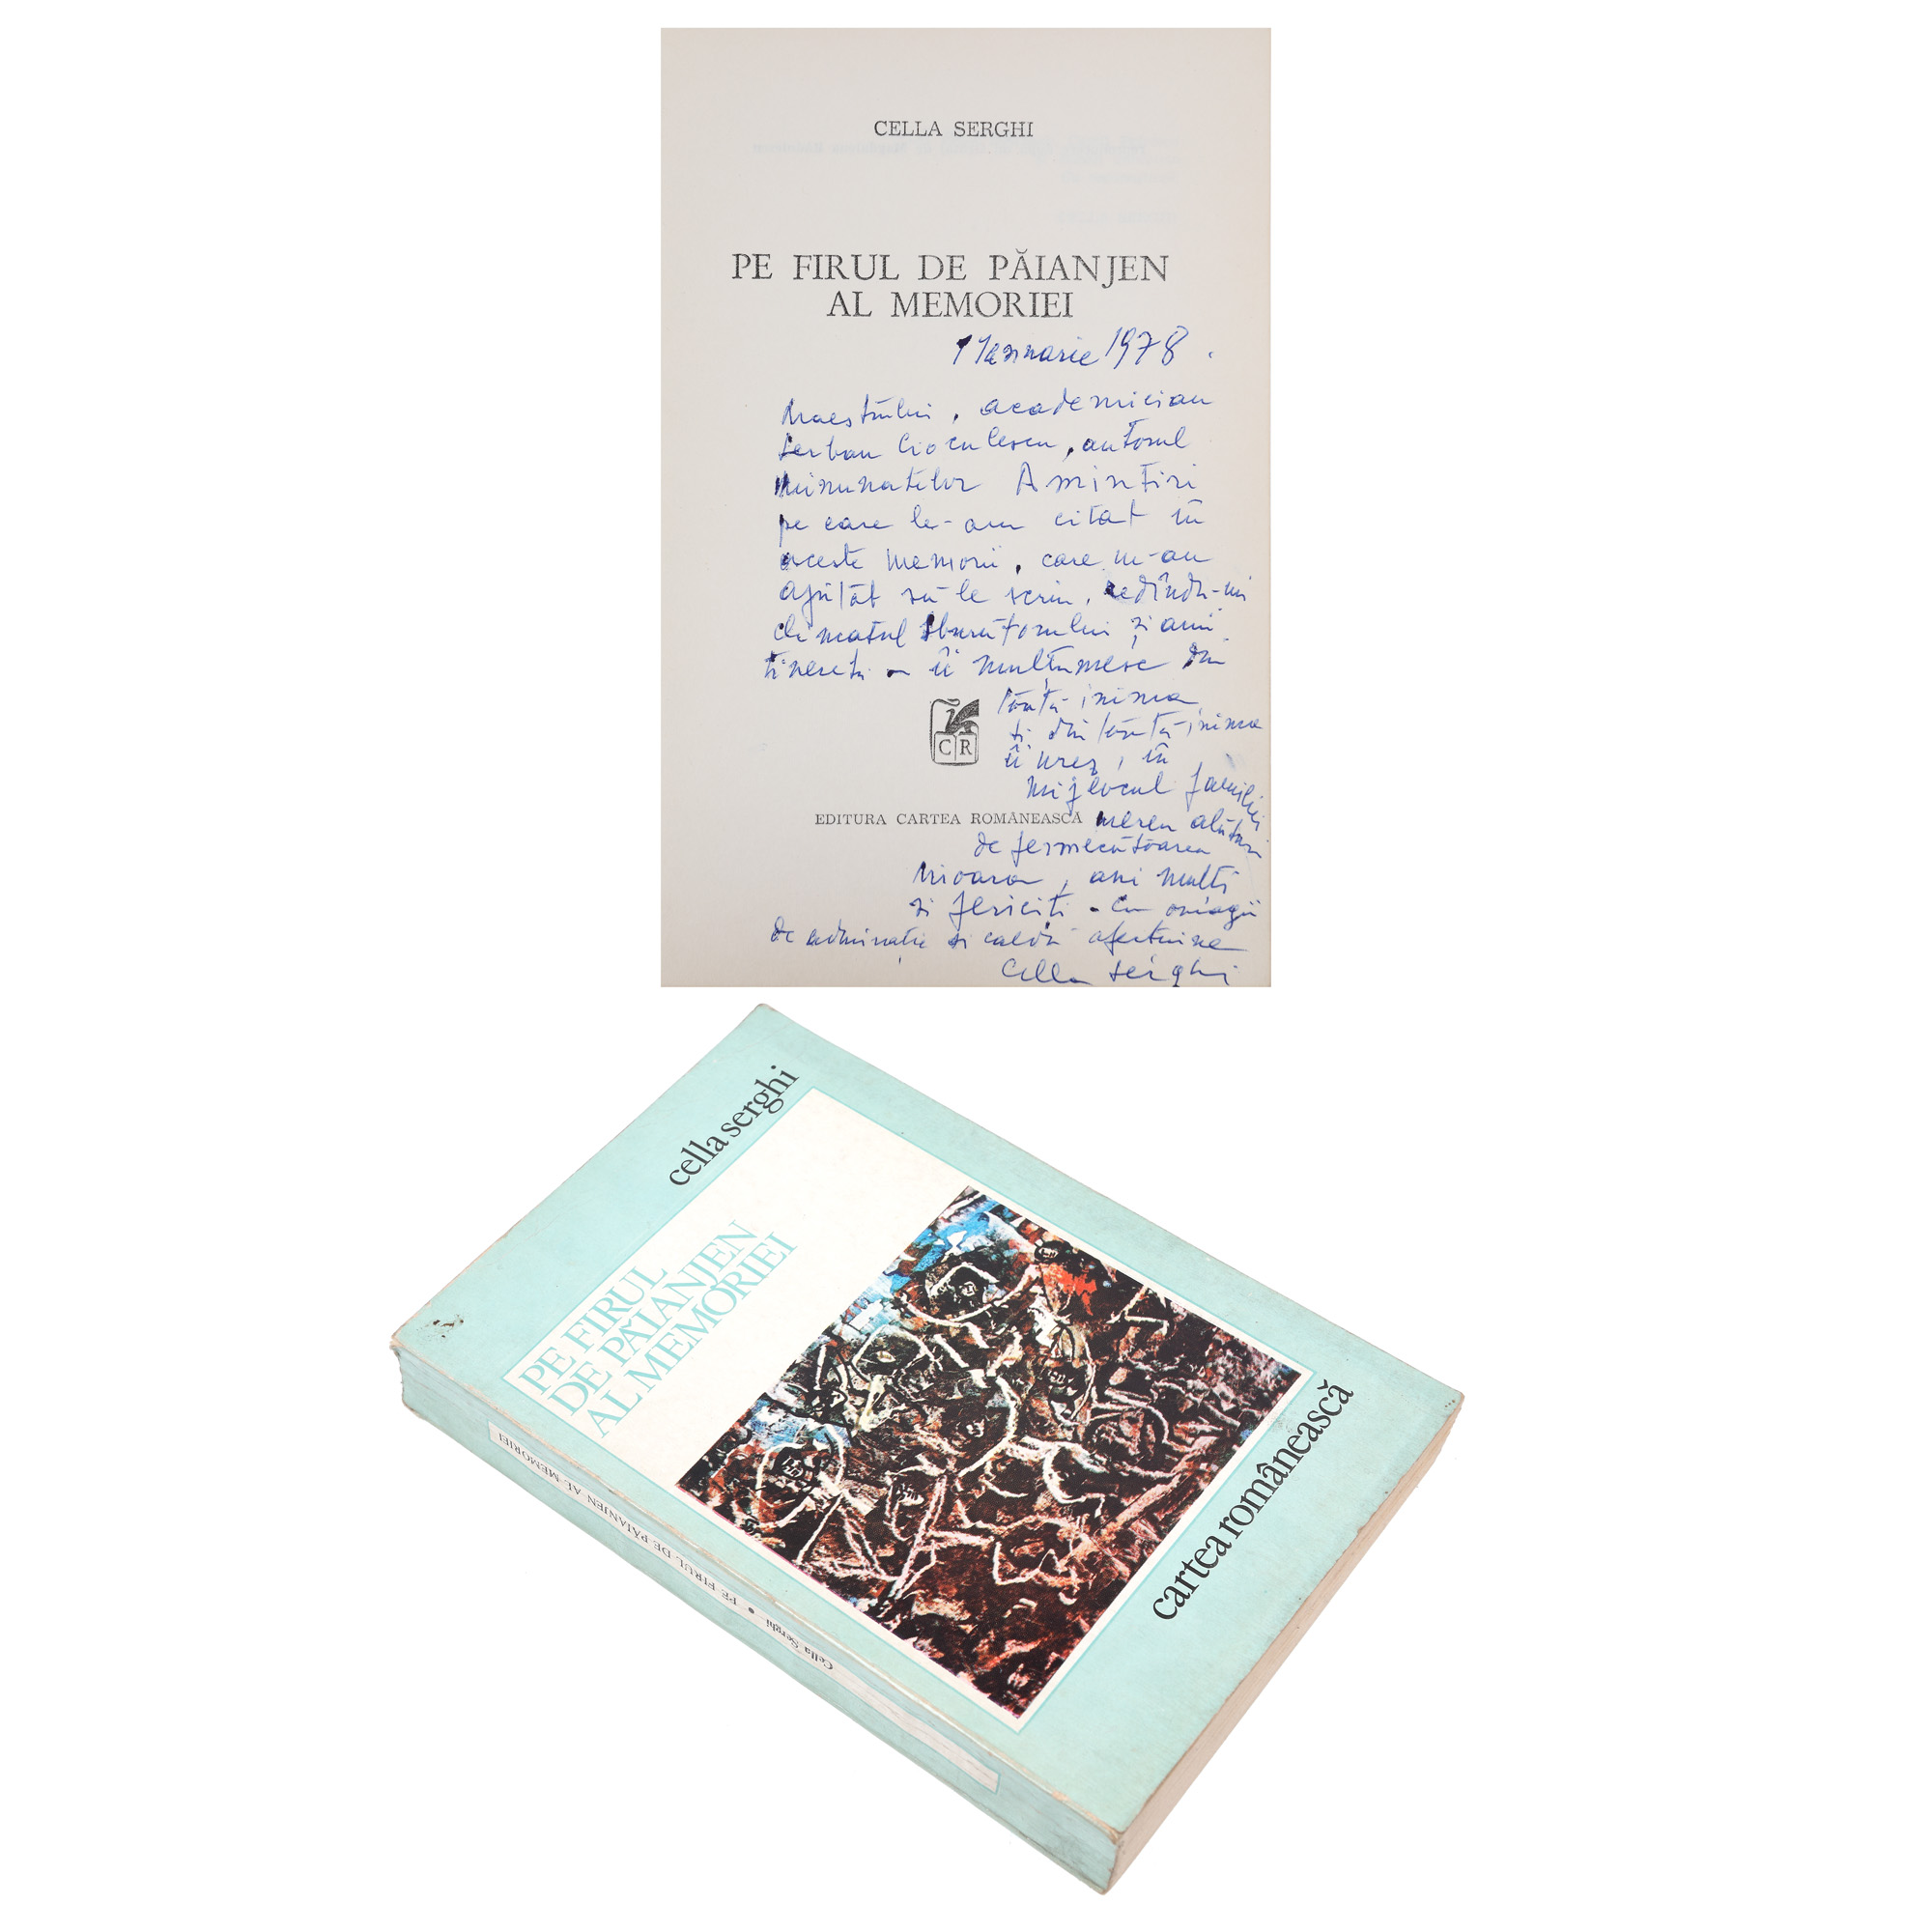 CELLA SERGHI
PE FIRUL DE PĂIANJEN
AL MEMORIEI
1 Ianuarie 1978.
Maestrului, academician
Șerban Cioculescu, autorul
minunatelor Amintiri
pe care le-am citat în
aceste memorii, care m-au
ajutat să le scriu, redîndu-mi
climatul Sburătorului și anii
tinereții - îi mulțumesc din
toată inima
și din toată inima
îi urez, în
mijlocul familiei
CR
EDITURA CARTEA ROMÂNEASCĂ
mereu alături
de fermecătoarea
Mioara, ani mulți
și fericiți - Cu omagii
de admirație și caldă afecțiune
Cella Serghi
cella serghi
PE FIRUL
DE PĂIANJEN
AL MEMORIEI
cartea românească
Cella Serghi • PE FIRUL DE PĂIANJEN AL MEMORIEI